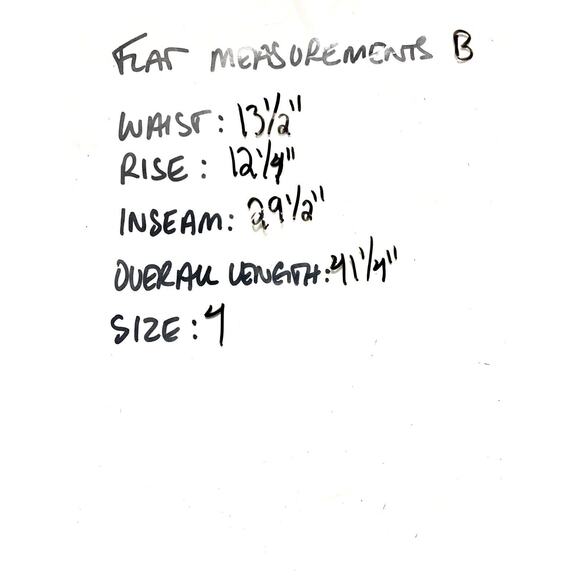 FLAT MEASUREMENTS B
WAIST: 13 1/2"
RISE: 12 1/4"
INSEAM: 29 1/2"
OVERALL LENGTH: 41 1/4"
SIZE: 4